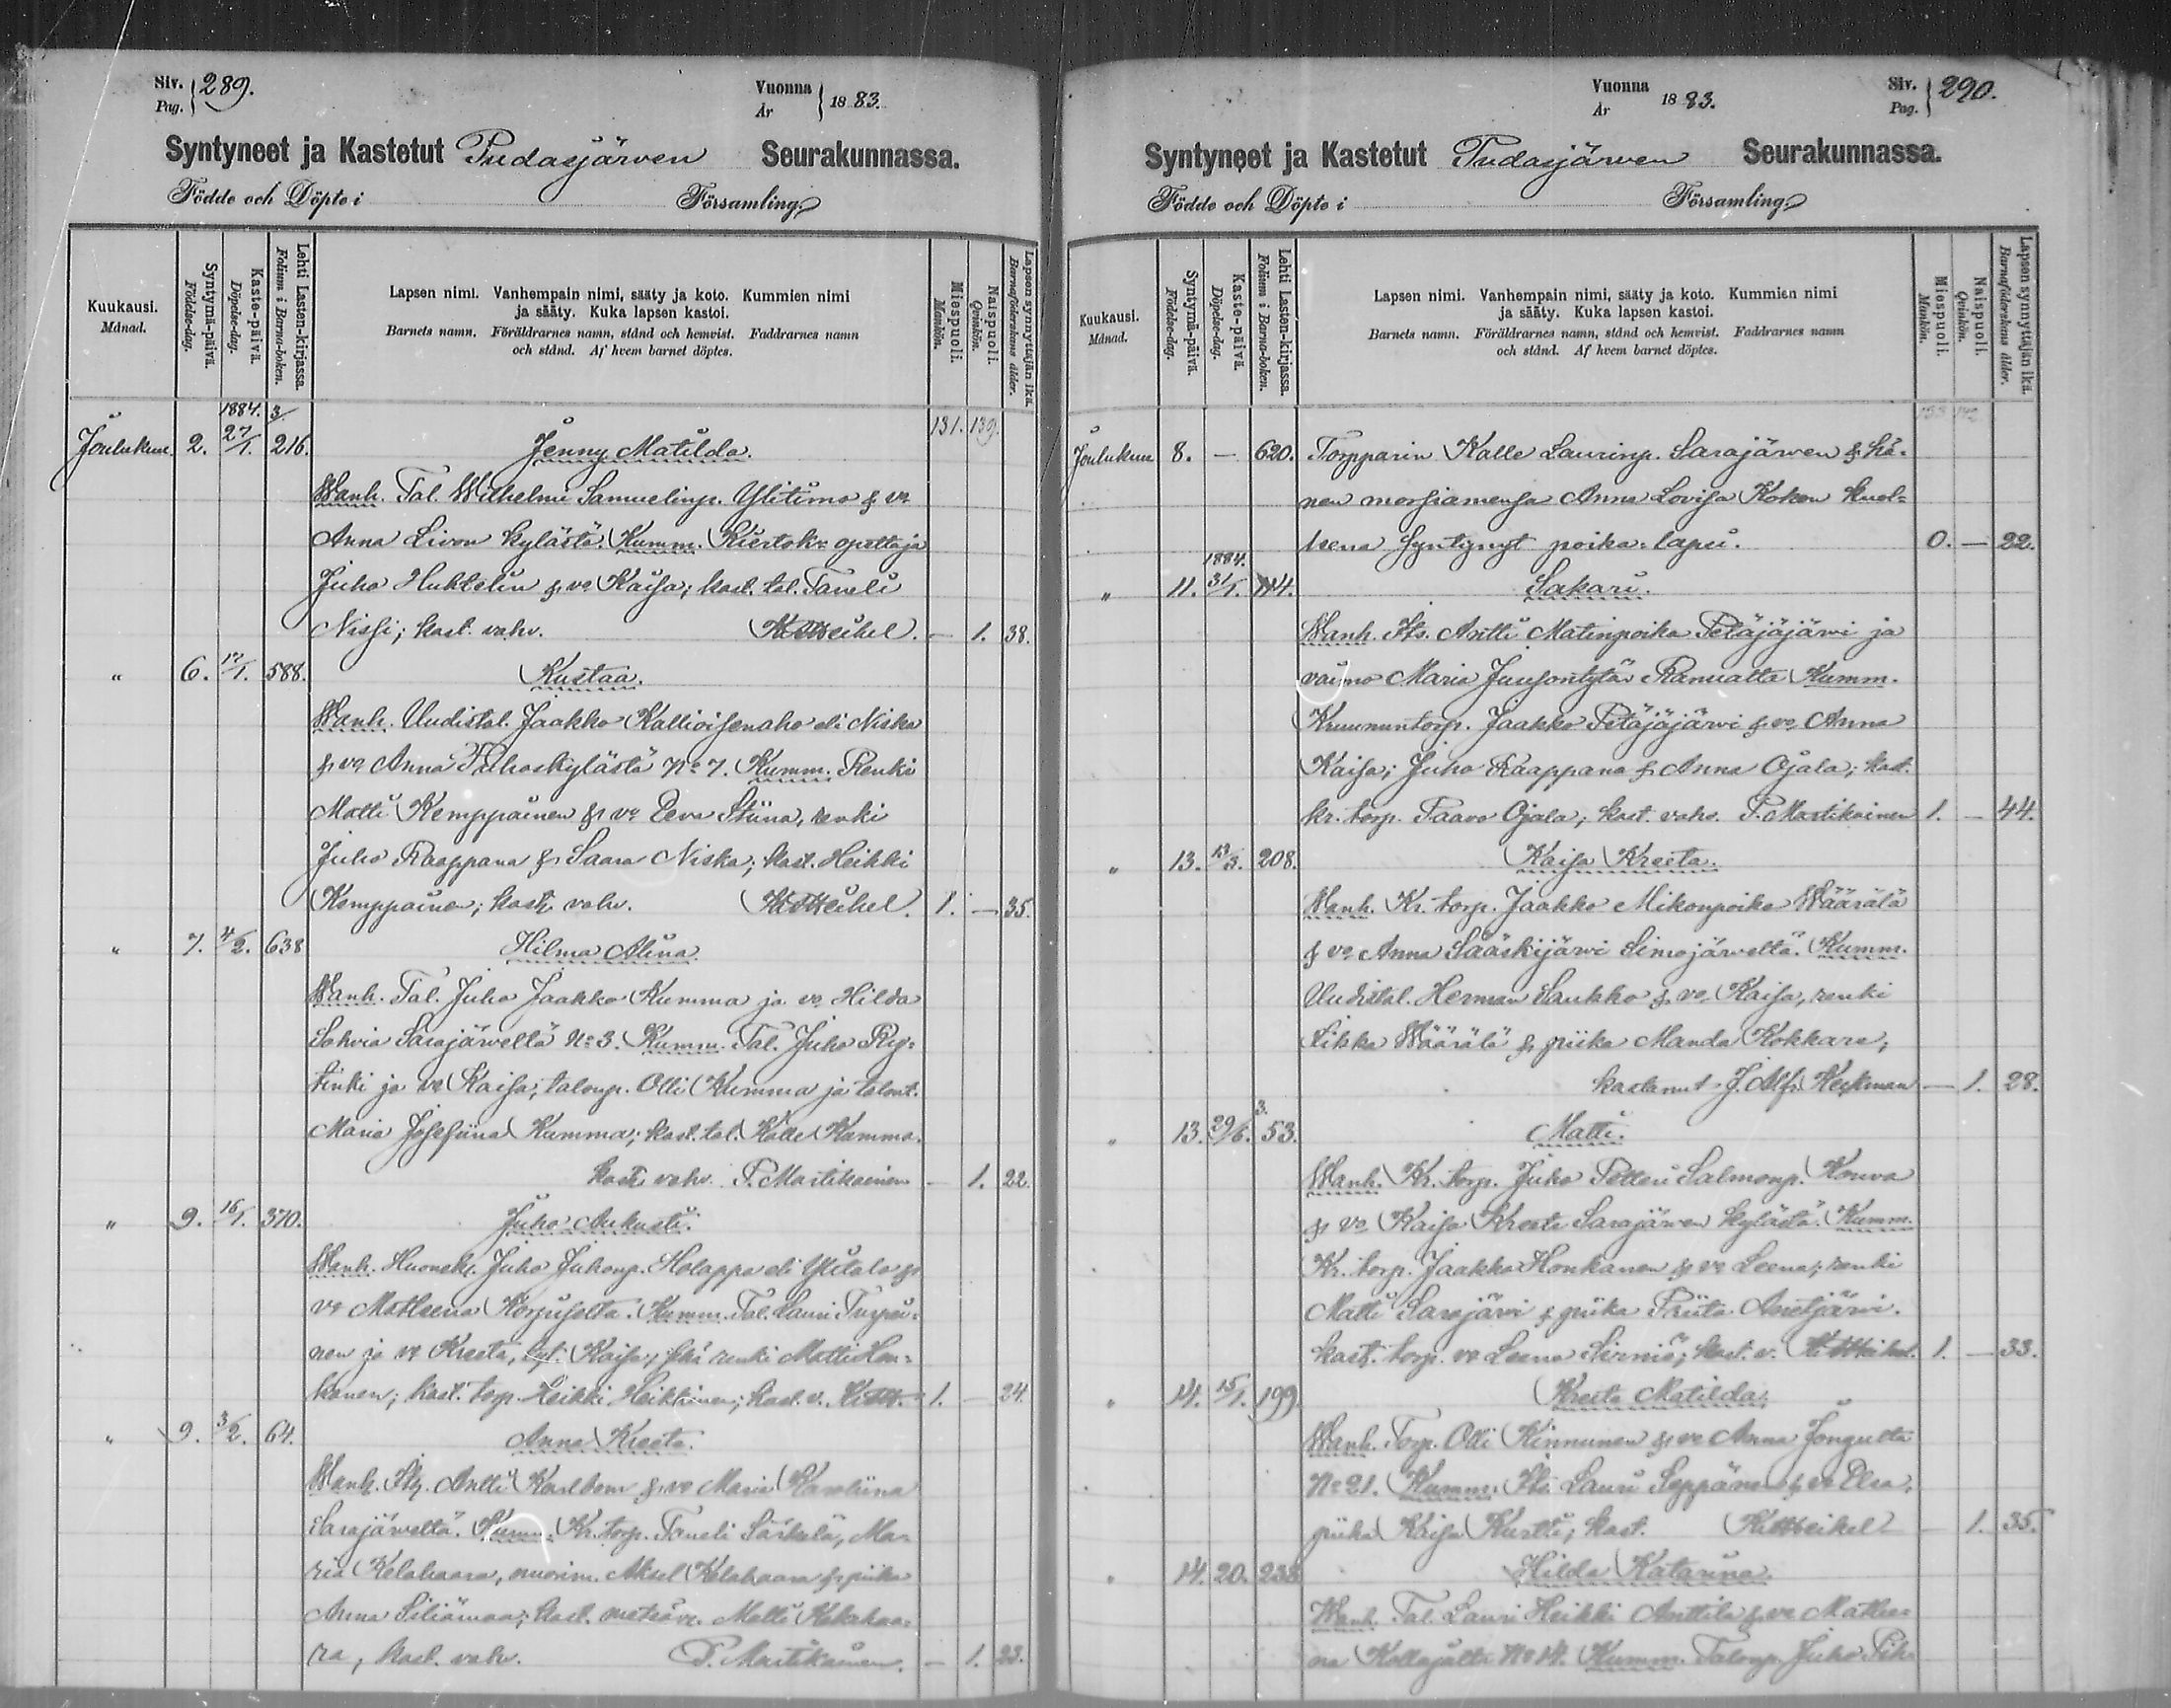 Siv. 289.
Pag.
Vuonna 1883.
År
Syntyneet ja Kastetut Pudasjärven Seurakunnassa.
Födde och Döpte i Församling
Kuukausi.
Månad.
Syntymä-päivä.
Födelse-dag.
Kaste-päivä.
Döpelse-dag.
Lehti Lasten-kirjassa.
Folium i Barna-boken.
Lapsen nimi. Vanhempain nimi, sääty ja koto. Kummien nimi
ja sääty. Kuka lapsen kastoi.
Barnets namn. Föräldrarnes namn, stånd och hemvist. Faddrarnes namn
och stånd. Af hvem barnet döptes.
Miespuoli.
Mankön.
Naispuoli.
Qvinkön.
Lapsen synnyttäjän ikä.
Barnaföderskans ålder.
1884. 3/
131. 139.
Joulukuu 2. 27/1. 216. Jenny Matilda.
Wanh. Tal. Wilhelmi Samuelinp. Ylitimo & vo
Anna Livon kylästä. Kumm. Kiertok. opettaja
Juho Huktelin & vo Kaisa; kast. tal. Taneli
Nissi; kast. vahv. — 1. 38.
" 6. 17/1. 588. Kustaa.
Wanh. Uudistal. Jaakko Kallioisenaho eli Niska
& vo Anna kylästä No 7. Kumm. Renki
Matti Kemppainen & vo Eeva Stiina, renki
Juho Raappana & Saara Niska; kast. Heikki
Kemppainen; kast. vahv. 1. — 35.
" 7. 4/2. 638 Hilma Aliina.
Wanh. Tal. Juho Jaakko Kumma ja vo Hilda
Sohvia Sarajärveltä No 3. Kumm. Tal. Juho Ryy-
tinki ja vo Kaisa; talonp. Olli Kumma ja talont.
Maria Josefiina Kumma; kast. tal. Kalle Kumma.
kast. vahv. P. Martikainen — 1. 22.
" 9. 16/1. 370. Juho Aukusti.
Wanh. Huonekl. Juho Juhonp. Holappa eli Ylitalo &
vo Matleena Korpiselta. Kumm. Tal. Lauri Turpei-
nen ja vo Kreeta, Kaisa; renki Matti Hon-
kanen; kast. torp. Heikki Heikkinen; kast. v. 1. — 24.
" 9. 3/2. 64. Anna Kreeta.
Wanh. Antti Karlbom & vo Maria Karoliina
Sarajärveltä. Kumm. Kr. torp. Taneli Särkelä, Ma-
ria Kelahaara, nuorim. Aksel Kelahaara & piika
Anna Siliämaa; kast. metsäv. Matti Kelahaa-
ra, kast. vahv. P. Martikainen. — 1. 23.
Vuonna 1883.
År
Siv. 290.
Pag.
Syntyneet ja Kastetut Pudasjärven Seurakunnassa.
Födde och Döpte i Församling
Kuukausi.
Månad.
Syntymä-päivä.
Födelse-dag.
Kaste-päivä.
Döpelse-dag.
Lehti Lasten-kirjassa.
Folium i Barna-boken.
Lapsen nimi. Vanhempain nimi, sääty ja koto. Kummien nimi
ja sääty. Kuka lapsen kastoi.
Barnets namn. Föräldrarnes namn, stånd och hemvist. Faddrarnes namn
och stånd. Af hvem barnet döptes.
Miespuoli.
Mankön.
Naispuoli.
Qvinkön.
Lapsen synnyttäjän ikä.
Barnaföderskans ålder.
Joulukuu 8. — 620. Torpparin Kalle Laurinp. Sarajärven & hä-
nen morsiamensa Anna Lovisa Kokon kuol-
leena syntynyt poika-lapsi. 0. — 22.
1884.
" 11. 31/1. Sakari.
Wanh. Its. Antti Matinpoika Petäjäjärvi ja
vaimo Maria Juusontytär Ranualta Kumm.
Kruununtorp. Jaakko Petäjäjärvi & vo Anna
Kaisa; Juho Raappana & Anna Ojala; kast.
kr. torp. Paavo Ojala; kast. vahv. P. Martikainen 1. — 44.
" 13. 13/3. 208. Kaisa Kreeta.
Wanh. Kr. torp. Jaakko Mikonpoika Wäärälä
& vo Anna Sääskijärvi Simojärveltä. Kumm.
Uudistal. Herman Saukko & vo Kaisa, renki
Wäärälä & piika Manda Kokkara;
kastanut J. Alfr. Heikman — 1. 28.
3.
" 13. 29/6. 53. Matti.
Wanh. Kr. torp. Juho Petteri Salmonp. Kouva
& vo Kaisa Kreeta Sarajärven kylästä. Kumm.
Kr. torp. Jaakko Honkanen & vo Leena; renki
Matti Sarajärvi & piika Priita Anetjärvi.
kast. torp. vo Leena Sirniö; kast. v. 1. — 33.
" 14. 15/1. 199. Kreeta Matilda.
Wanh. Torp. Olli Kinnunen & vo Anna Jongulta
No 21. Kumm. Its. Lauri Seppänen & vo Elsa,
piika Kaisa Kurtti; kast. — 1. 35.
" 14. 20. 238 Hilda Katariina.
Wanh. Tal. Lauri Heikki Anttila & vo Matlee-
na Kollajalta No 14. Kumm. Talonp. Juho